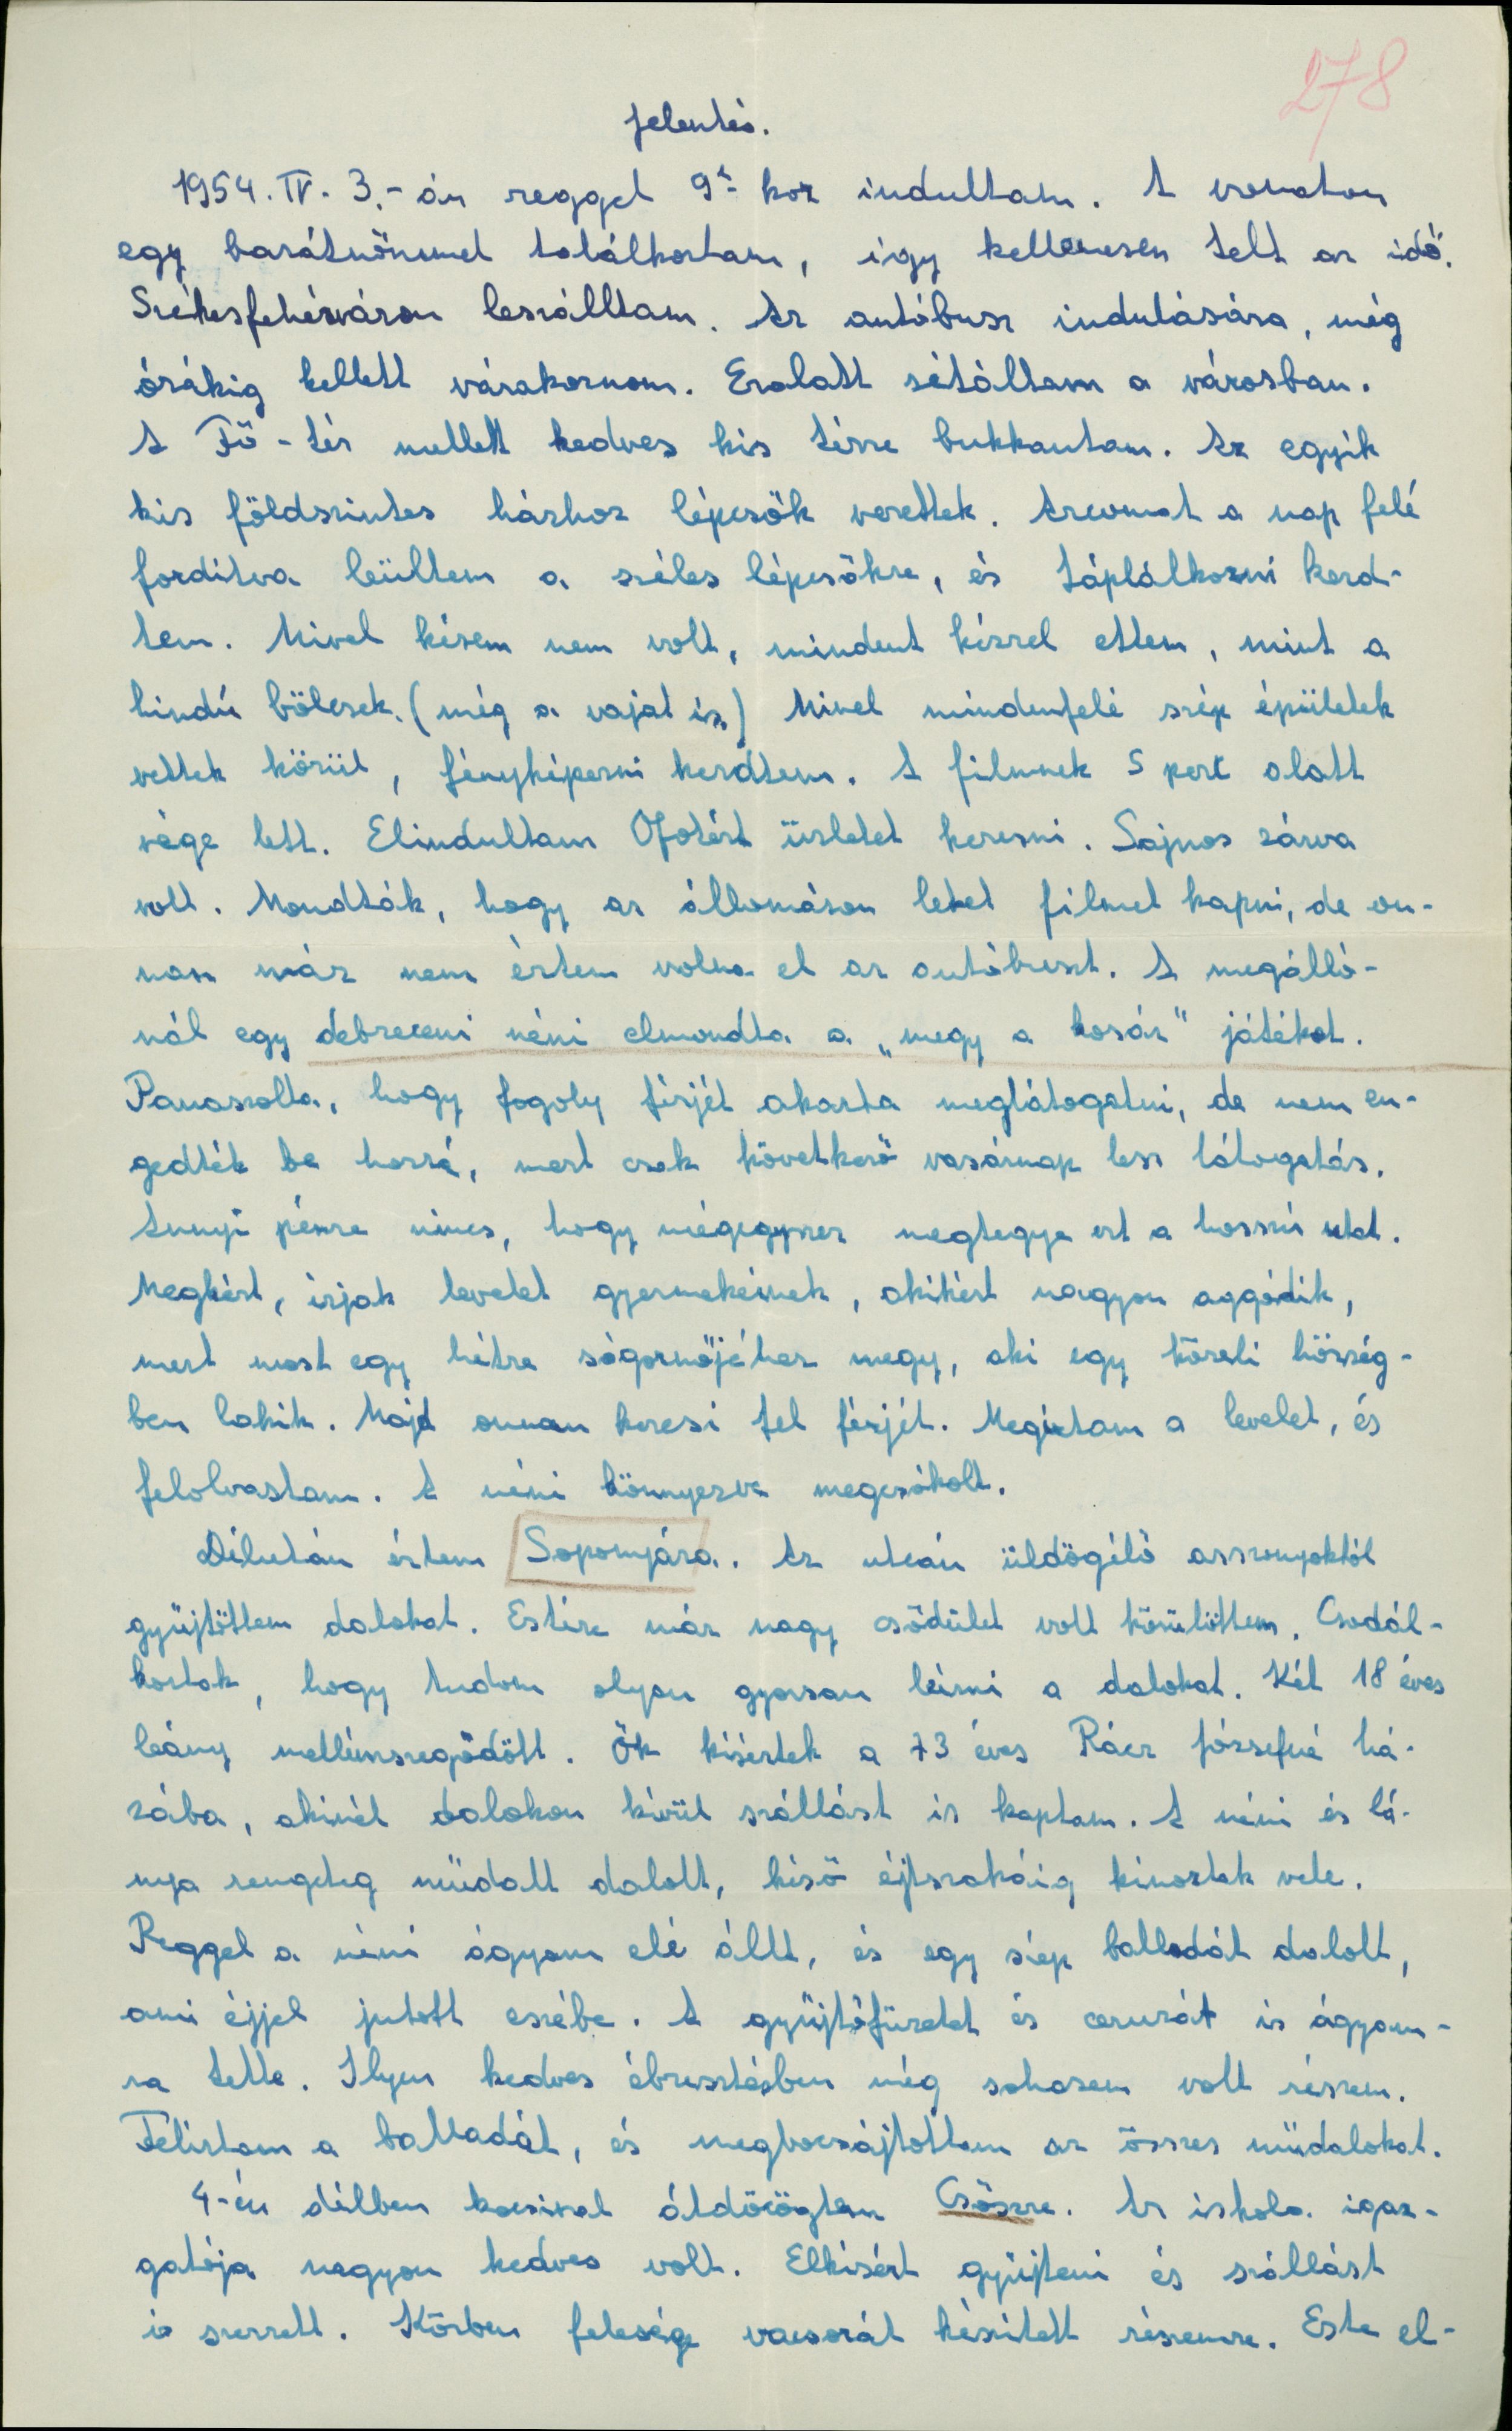 278
Jelentés.
1954. IV. 3.-án reggel 9h kor indultam. A vonaton
egy barátnőmmel találkoztam, így kellemesen telt az idő.
Székesfehérváron leszálltam. Az autóbusz indulására, még
órákig kellett várakoznom. Ezalatt sétáltam a városban.
A Fő-tér mellett kedves kis térre bukkantam. Az egyik
kis földszintes házhoz lépcsők vezettek. Arcomat a nap felé
fordítva leültem a széles lépcsőkre, és táplálkozni kezd-
tem. Mivel késem nem volt, mindent kézzel ettem, mint a
hindú bölcsek. (még a vajat is.) Mivel mindenfelé szép épületek
vettek körül, fényképezni kezdtem. A filmnek 5 perc alatt
vége lett. Elindultam Ofotért üzletet keresni. Sajnos zárva
volt. Mondták, hogy az állomáson lehet filmet kapni, de on-
nan már nem értem volna el az autóbuszt. A megálló-
nál egy debreceni néni elmondta a „megy a kosár" játékot.
Panaszolta, hogy fogoly férjét akarta meglátogatni, de nem en-
gedték be hozzá, mert csak következő vasárnap lesz látogatás.
Annyi pénze nincs, hogy mégegyszer megtegye ezt a hosszú utat.
Megkért, írjak levelet gyermekeinek, akikért nagyon aggódik,
mert most egy hétre sógornőjéhez megy, aki egy közeli község-
ben lakik. Majd onnan keresi fel férjét. Megírtam a levelet, és
felolvastam. A néni könnyezve megcsókolt.
Délután értem Soponyára. Az utcán üldögélő asszonyoktól
gyűjtöttem dalokat. Estére már nagy csődület volt körülöttem. Csodál-
koztak, hogy tudom olyan gyorsan leírni a dalokat. Két 18 éves
leány mellémszegődött. Ők kísértek a 73 éves Rácz Józsefné há-
zába, akinél dalokon kívül szállást is kaptam. A néni és lá-
nya rengeteg műdalt dalolt, késő éjtszakáig kínoztak vele.
Reggel a néni ágyam elé állt, és egy szép balladát dalolt,
ami éjjel jutott eszébe. A gyűjtőfüzetet és ceruzát is ágyam-
ra tette. Ilyen kedves ébresztésben még sohasem volt részem.
Felírtam a balladát, és megbocsájtottam az összes műdalokat.
4-én délben kocsival átdöcögtem Csőszre. Az iskola igaz-
gatója nagyon kedves volt. Elkísért gyűjteni és szállást
is szerzett. Közben felesége vacsorát készített részemre. Este el-